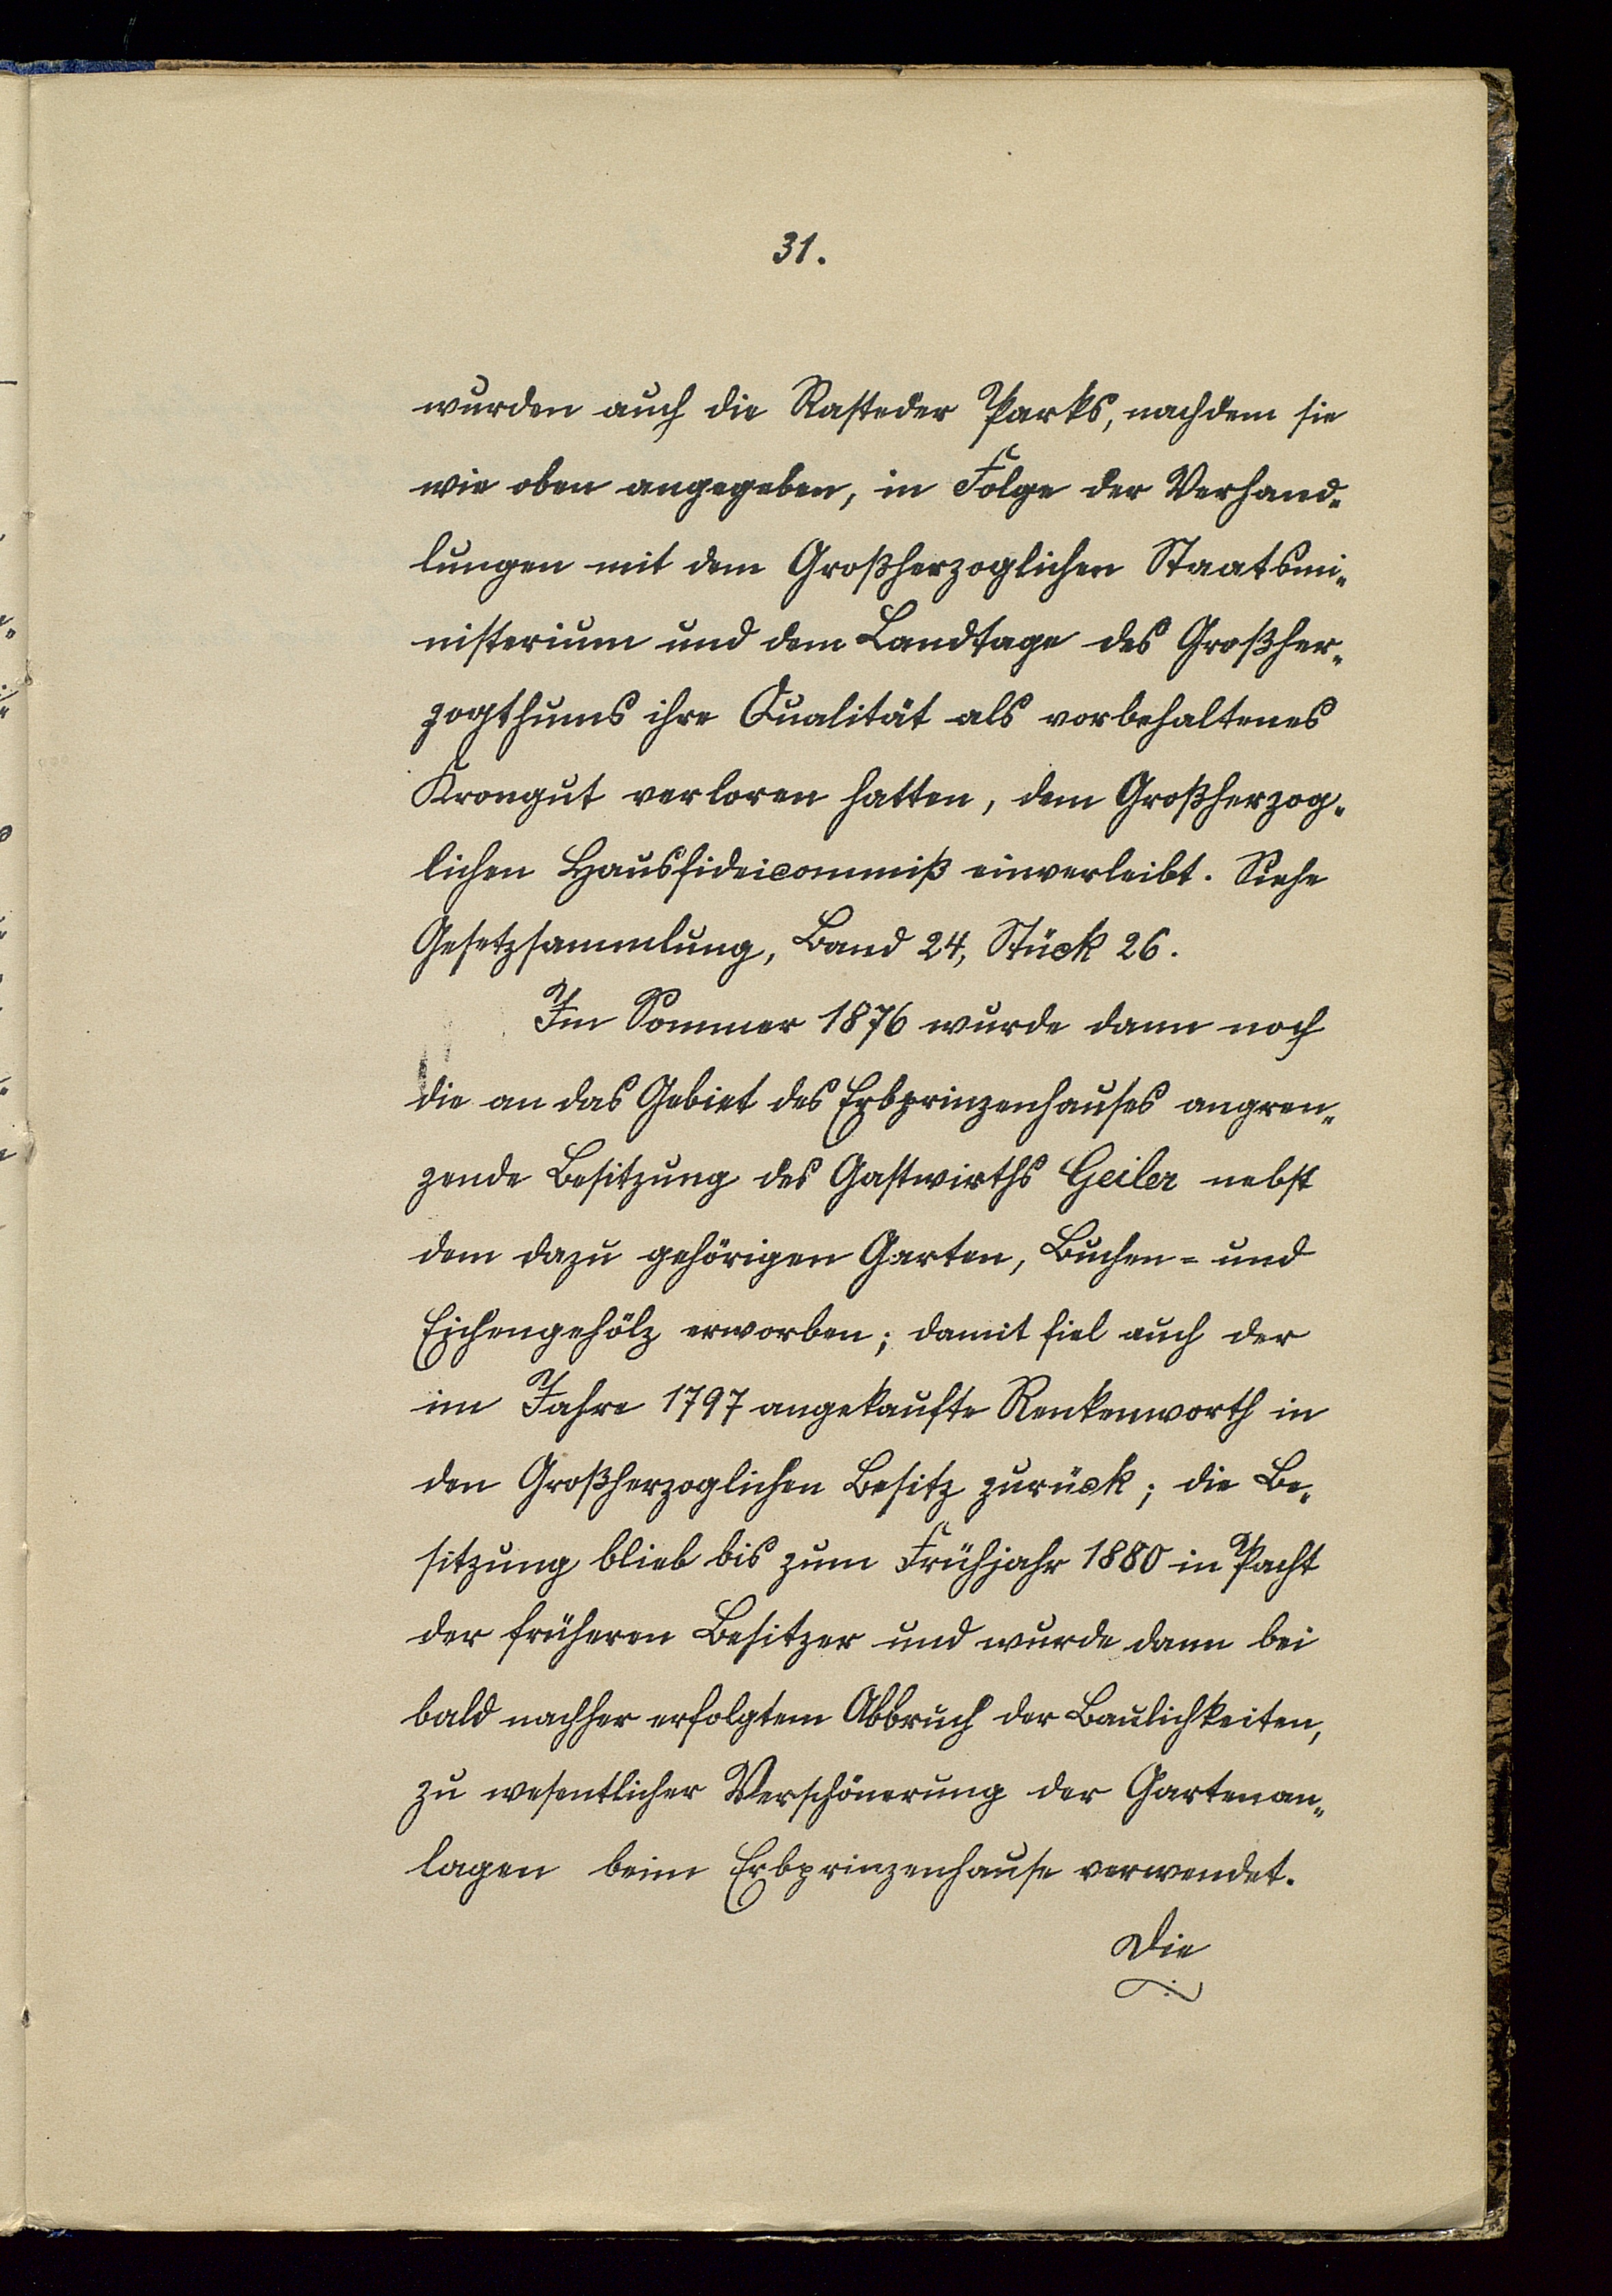 31.
wurden auch die Rasteder Parks, nachdem sie
wie oben angegeben, in Folge der Verhand-
lungen mit dem Großherzoglichen Staatsmi-
nisterium und dem Landtage des Großher-
zogthums ihre Qualität als vorbehaltenes
Krongut verloren hatten, dem Großherzog-
lichen Hausfideicommiß einverleibt. Siehe
Gesetzsammlung, Band 24, Stück 26.
Im Sommer 1876 wurde dann noch
die an das Gebiet des Erbprinzenhauses angren-
zende Besitzung des Gastwirths Geiler nebst
dem dazu gehörigen Garten, Buchen- und
Eichengehölz erworben; damit fiel auch der
im Jahre 1797 angekaufte Renkenworth in
den Großherzoglichen Besitz zurück; die Be-
sitzung blieb bis zum Frühjahr 1880 in Pacht
der früheren Besitzer und wurde dann bei
bald nachher erfolgtem Abbruch der Baulichkeiten,
zu wesentlicher Verschönerung der Gartenan-
lagen beim Erbprinzenhause verwendet.
Die